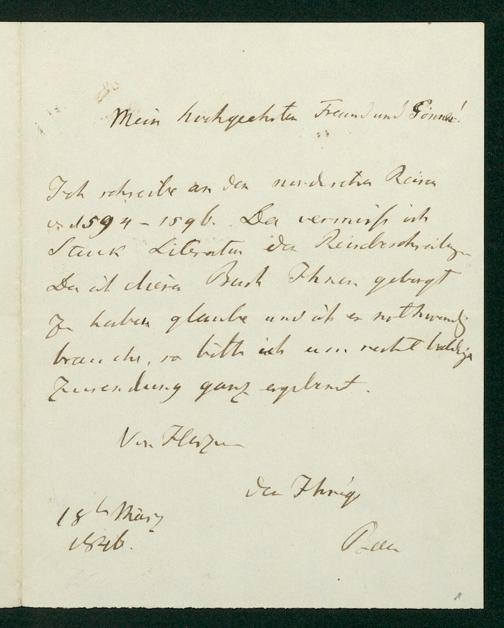 Mein hochgeehrter Freund und Gönner!
Ich schreibe an den nordischen Reisen
von 1594 – 1596. Da vermiss ich
Stuck Literatur der Reisebeschreibung.
Da ich dieses Buch Ihnen geborgt
zu haben glaube und ich es nothwendig
brauche, so bitte ich um recht baldige
Zusendung ganz ergebenst.
Von Herzen
der Ihrige
18ten März
1846.